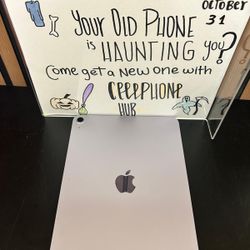 OCTOBER
31
YOUR OLD PHONE
is HAUNTING you?
Come get a New one with
CEEEPHONE
HUB